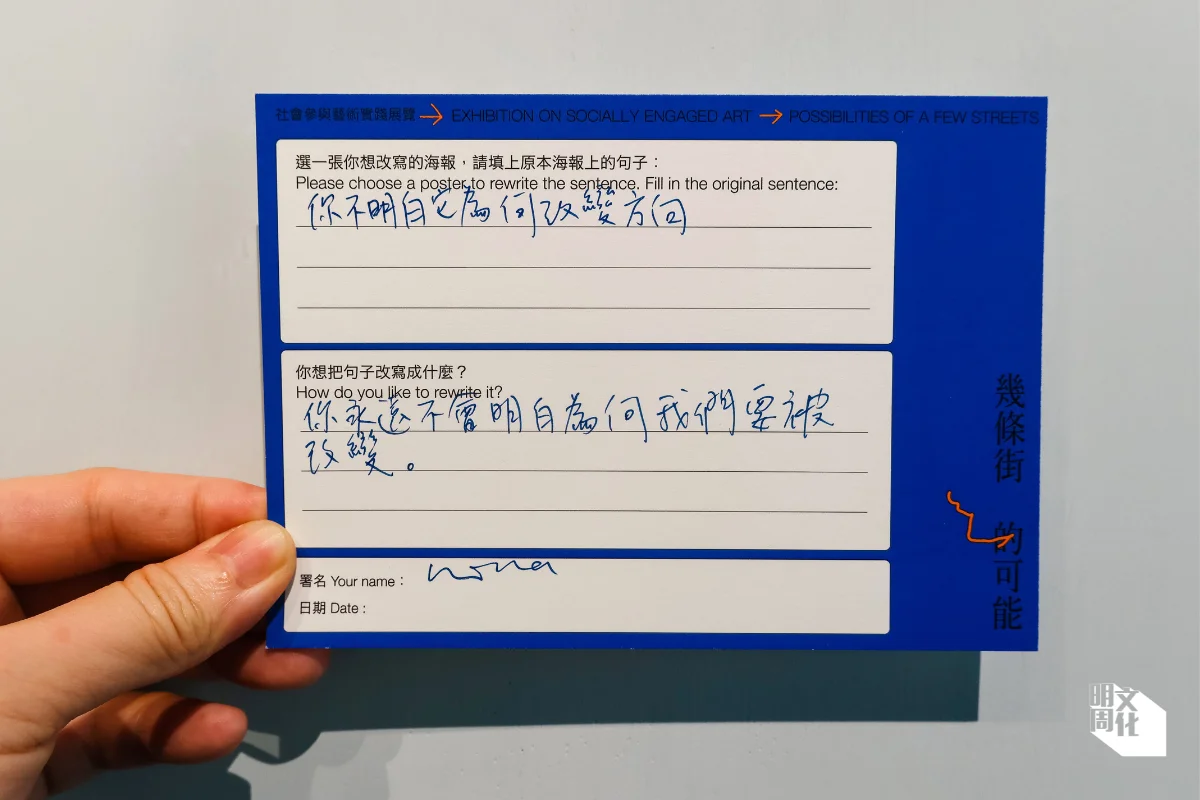 社會參與藝術實踐展覽 → EXHIBITION ON SOCIALLY ENGAGED ART → POSSIBILITIES OF A FEW STREETS
選一張你想改寫的海報，請填上原本海報上的句子：
Please choose a poster to rewrite the sentence. Fill in the original sentence:
你不明白它為何改變方向
你想把句子改寫成什麼？
How do you like to rewrite it?
你永遠不會明白為何我們要被
改變。
署名 Your name：nona
日期 Date :
幾條街 的可能
明周文化